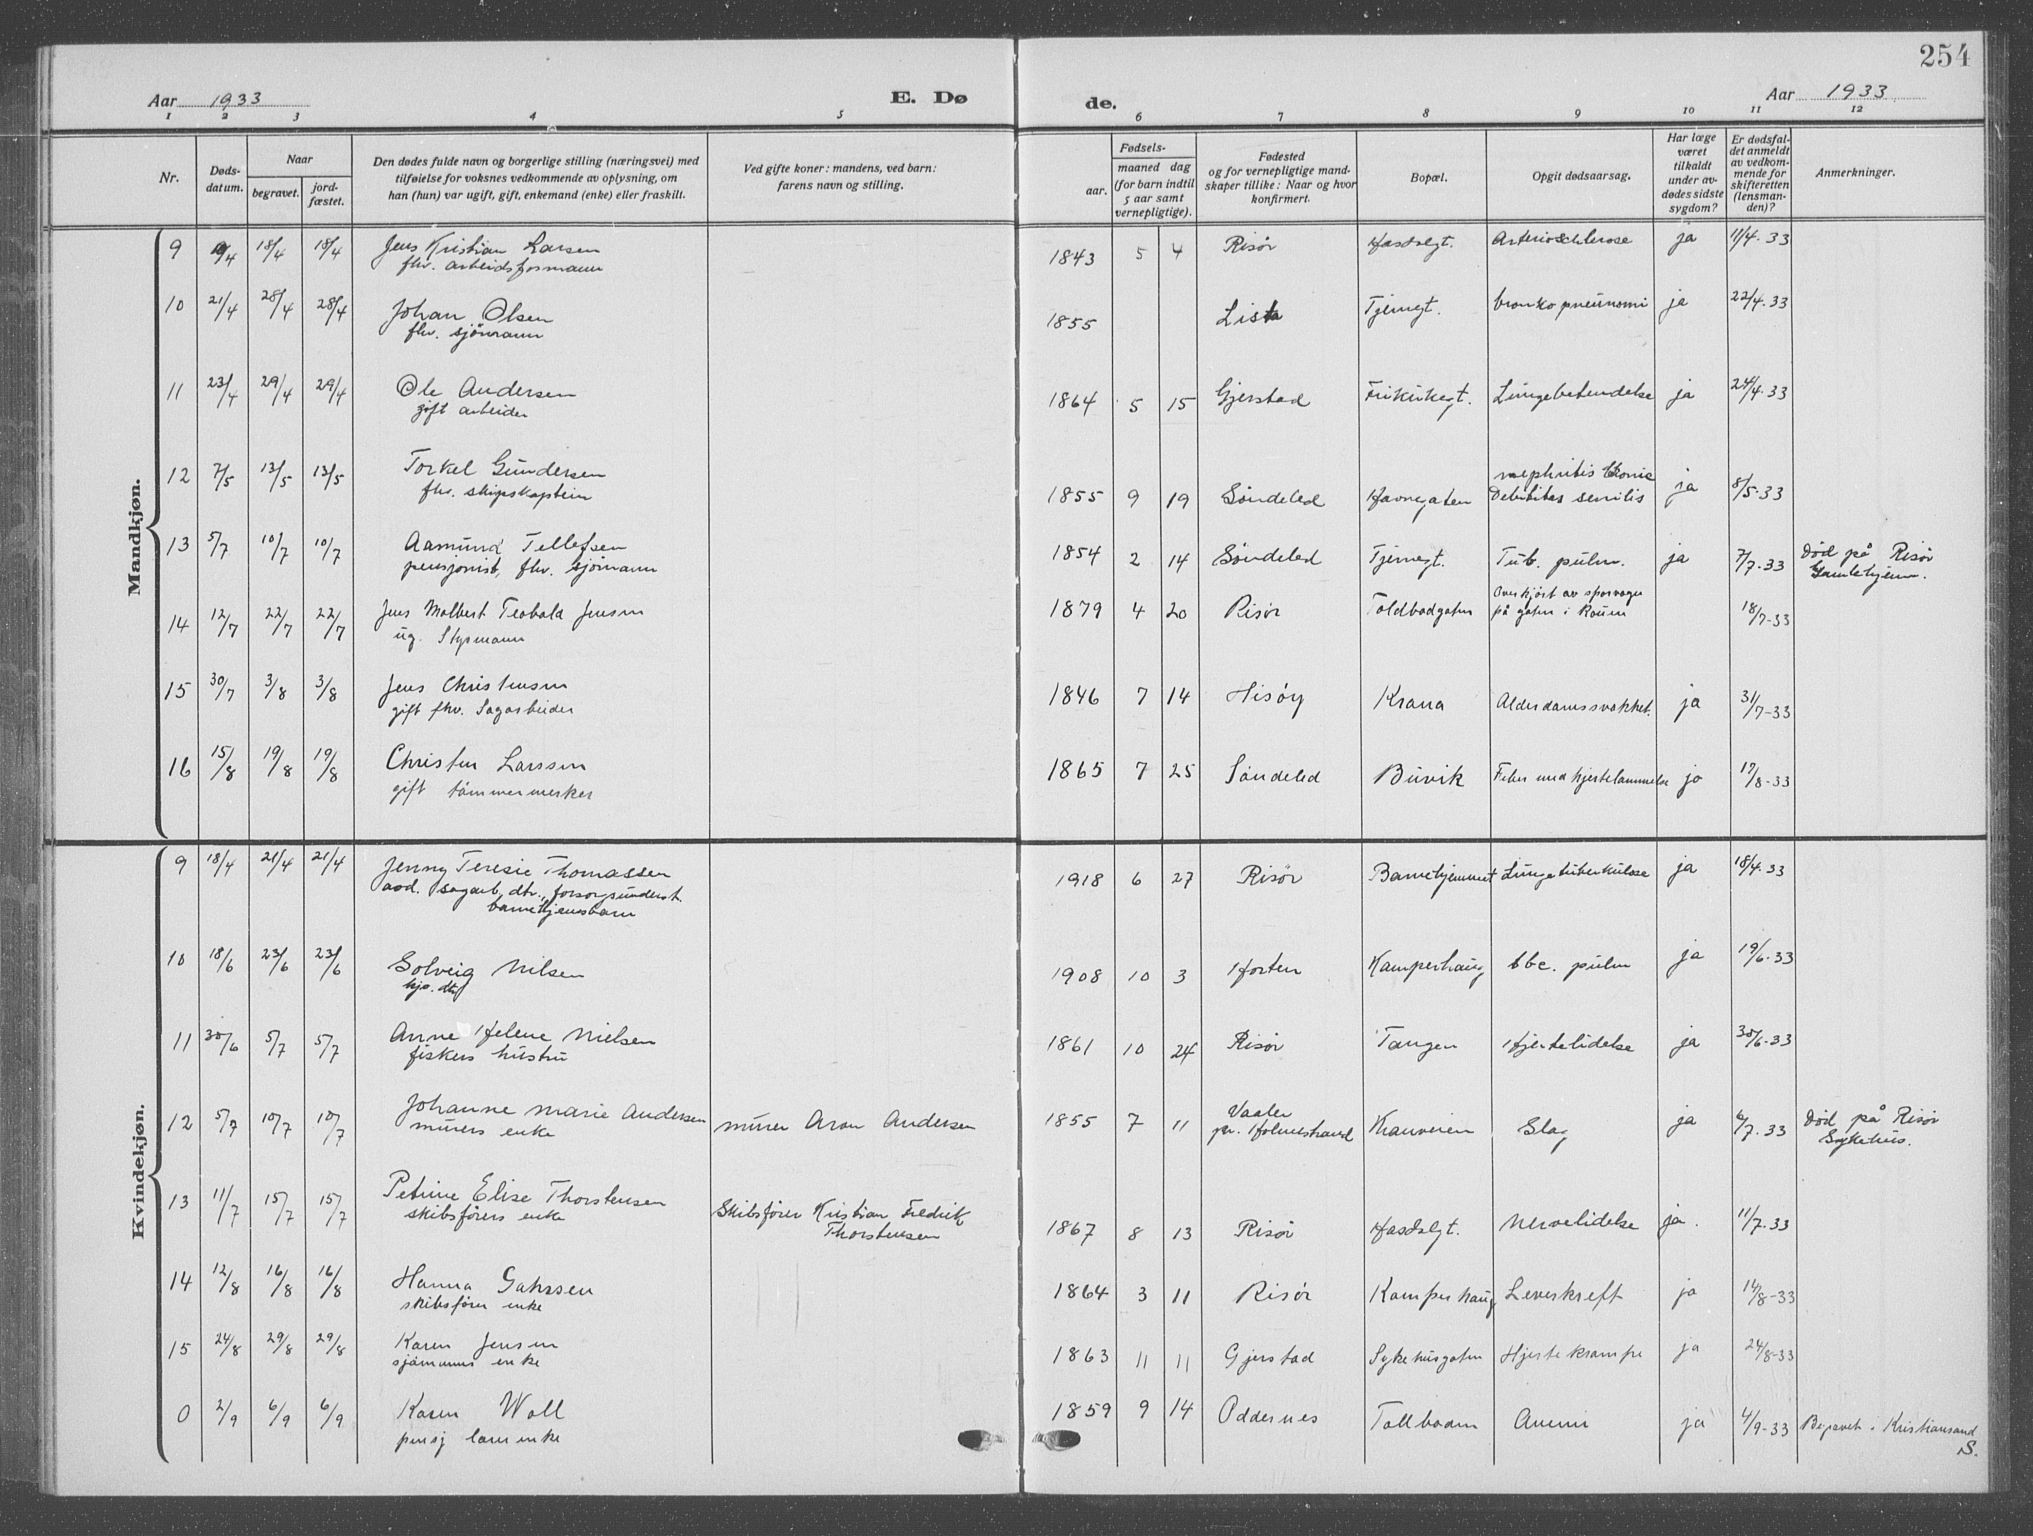 254
Aar 1933 E. Døde. Aar 1933
1 2 3 4 5 6 7 8 9 10 11 12
Nr.
Døds-
datum.
Naar
begravet.
jord-
fæstet.
Den dødes fulde navn og borgerlige stilling (næringsvei) med
tilføielse for voksnes vedkommende av oplysning, om
han (hun) var ugift, gift, enkemand (enke) eller fraskilt.
Ved gifte koner: mandens, ved barn:
farens navn og stilling.
Fødsels-
aar.
maaned dag
(for barn indtil
5 aar samt
vernepligtige).
Fødested
og for vernepligtige mand-
skaper tillike: Naar og hvor
konfirmert.
Bopæl.
Opgit dødsaarsag.
Har læge
været
tilkaldt
under av-
dødes sidste
sygdom?
Er dødsfal-
det anmeldt
av vedkom-
mende for
skifteretten
(lensman-
den)?
Anmerkninger.
Mandkjøn.
9 18/4 18/4 Jens Kristian Larsen 1843 5 4 Risør Hasdalgt. Arterioschlerose ja 11/4.33
fhv. arbeidsformann
10 21/4 28/4 28/4 Johan Olsen 1855 Lista Tjenngt. bronkopneunomi ja 22/4.33
fhv. sjømann
11 23/4 29/4 29/4 Ole Andersen 1864 5 15 Gjerstad Frikirkegt. Lungebetendelse ja 24/4.33
gift arbeider
12 7/5 13/5 13/5 Torkel Gundersen 1855 9 19 Søndeled Havnegaten nephritis Cronic ja 8/5.33
fhv. skipskaptein Debilitas senilis
13 5/7 10/7 10/7 Aamund Tellefsen 1854 2 14 Søndeled Tjenngt. Tub. pulm. ja 7/7.33 Død på Risør
pensjonist, fhv. sjømann Gamlehjem.
14 12/7 22/7 22/7 Jens Malbert Teobald Jensen 1879 4 20 Risør Toldbodgaten Overkjørt av sporvogn 18/7-33
ug. Styrmann på gaten i Rouen
15 30/7 3/8 3/8 Jens Christensen 1846 7 14 Hisøy Krana Alderdomssvakhet. ja 31/7-33
gift fhv. Sagarbeider
16 15/8 19/8 19/8 Christen Larssen 1865 7 25 Søndeled Buvik Feber med hjertelammelse ja 17/8-33
gift tømmermerker
Kvindekjøn.
9 18/4 21/4 21/4 Jenny Teresie Thomassen 1918 6 27 Risør Barnehjemmet Lungetuberkulose ja 18/4.33
avd. sagarb. dtr., forsorgsunderst.
barnehjemsbarn
10 18/6 23/6 23/6 Solveig Nilsen 1908 10 3 Horten Kamperhaug tbc. pulm ja 19/6.33
hjv. dtr
11 30/6 5/7 5/7 Anne Helene Nielsen 1861 10 24 Risør Tangen Hjertelidelse ja 30/6.33
fiskers hustru
12 5/7 10/7 10/7 Johanne Marie Andersen murer Aron Andersen 1855 7 11 Vaaler Kranveien Slag ja 6/7.33 Død på Risør
murers enke pr. Holmestrand Sykehus.
13 11/7 15/7 15/7 Petrine Elise Thorstensen Skibsfører Kristian Fredrik 1867 8 13 Risør Hasdalgt. Nervelidelse ja. 11/7.33
skibsførers enke Thorstensen
14 12/8 16/8 16/8 Hanna Gahssen 1864 3 11 Risør Kamperhaug Leverkreft ja 14/8-33
skibsfører enke
15 24/8 29/8 29/8 Karen Jensen 1863 11 11 Gjerstad Sykehusgaten Hjertekrampe ja 24/8-33
sjømanns enke
0 2/9 6/9 6/9 Karen Woll 1859 9 14 Oddernes Tollboden Anemi ja 4/9-33 Begravet i Kristiansand
pensj enke S.